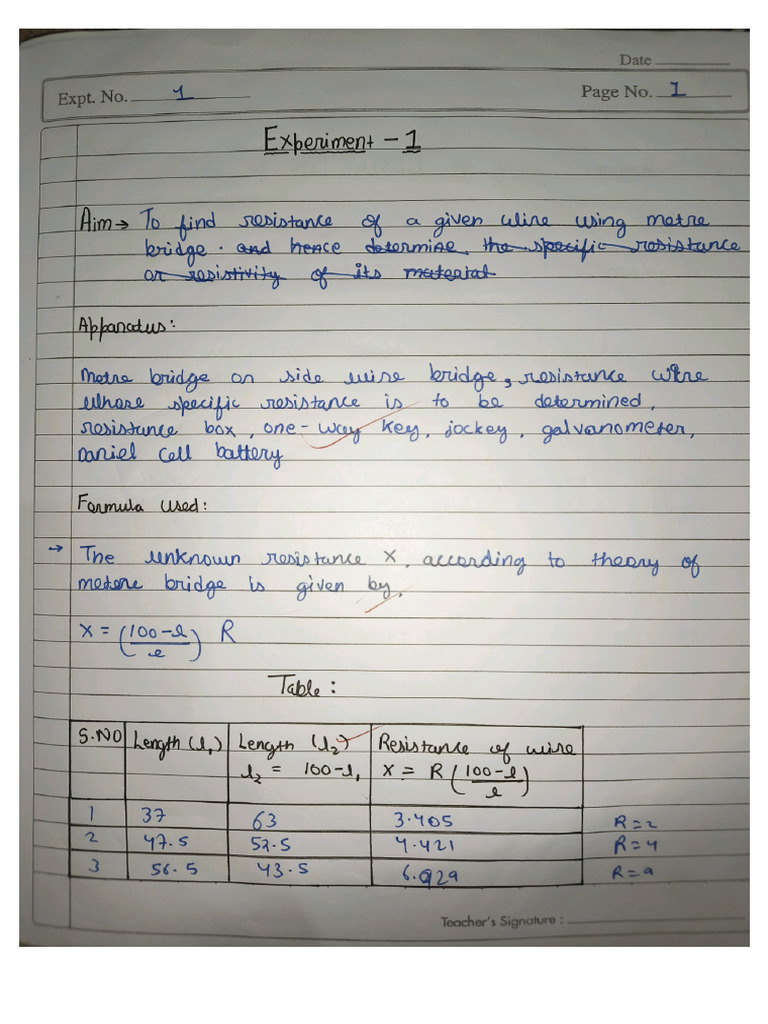 Date
Expt. No. 1
Page No. 1
Experiment - 1
Aim → To find resistance of a given wire using metre
bridge. and hence determine the specific resistance
or resistivity of its material
Apparatus:
Metre bridge or side wire bridge, resistance wire
whose specific resistance is to be determined,
resistance box, one-way key, jockey, galvanometer,
Daniel cell battery
Formula used:
→ The unknown resistance X, according to theory of
metere bridge is given by,
X = (100-l / l) R
Table:
S.NO Length (l₁) Length (l₂) l₂ = 100-l₁ Resistance of wire X = R (100-l / l)
1 37 63 3.405 R=2
2 47.5 52.5 4.421 R=4
3 56.5 43.5 6.929 R=9
Teacher's Signature :